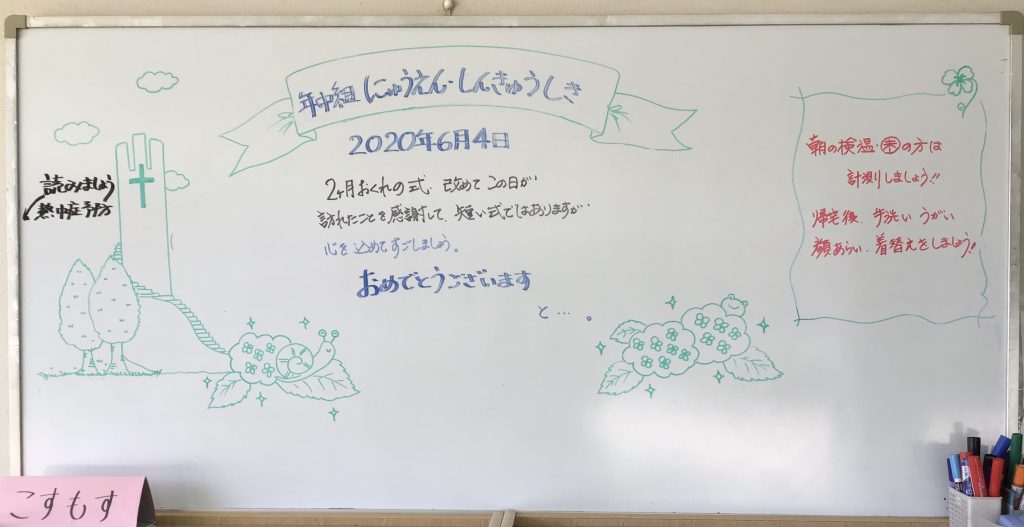 年中組 にゅうえん・しんきゅうしき
2020年6月4日
2ヶ月おくれの式、改めてこの日が
訪れたことを感謝して、短い式ではありますが…
心を込めてすごしましょう。
おめでとうございます
と…。
読みましょう
熱中症予防
朝の検温・㊍の方は
計測しましょう!!
帰宅後、手洗い うがい
顔あらい、着替えをしましょう!!
こすもす